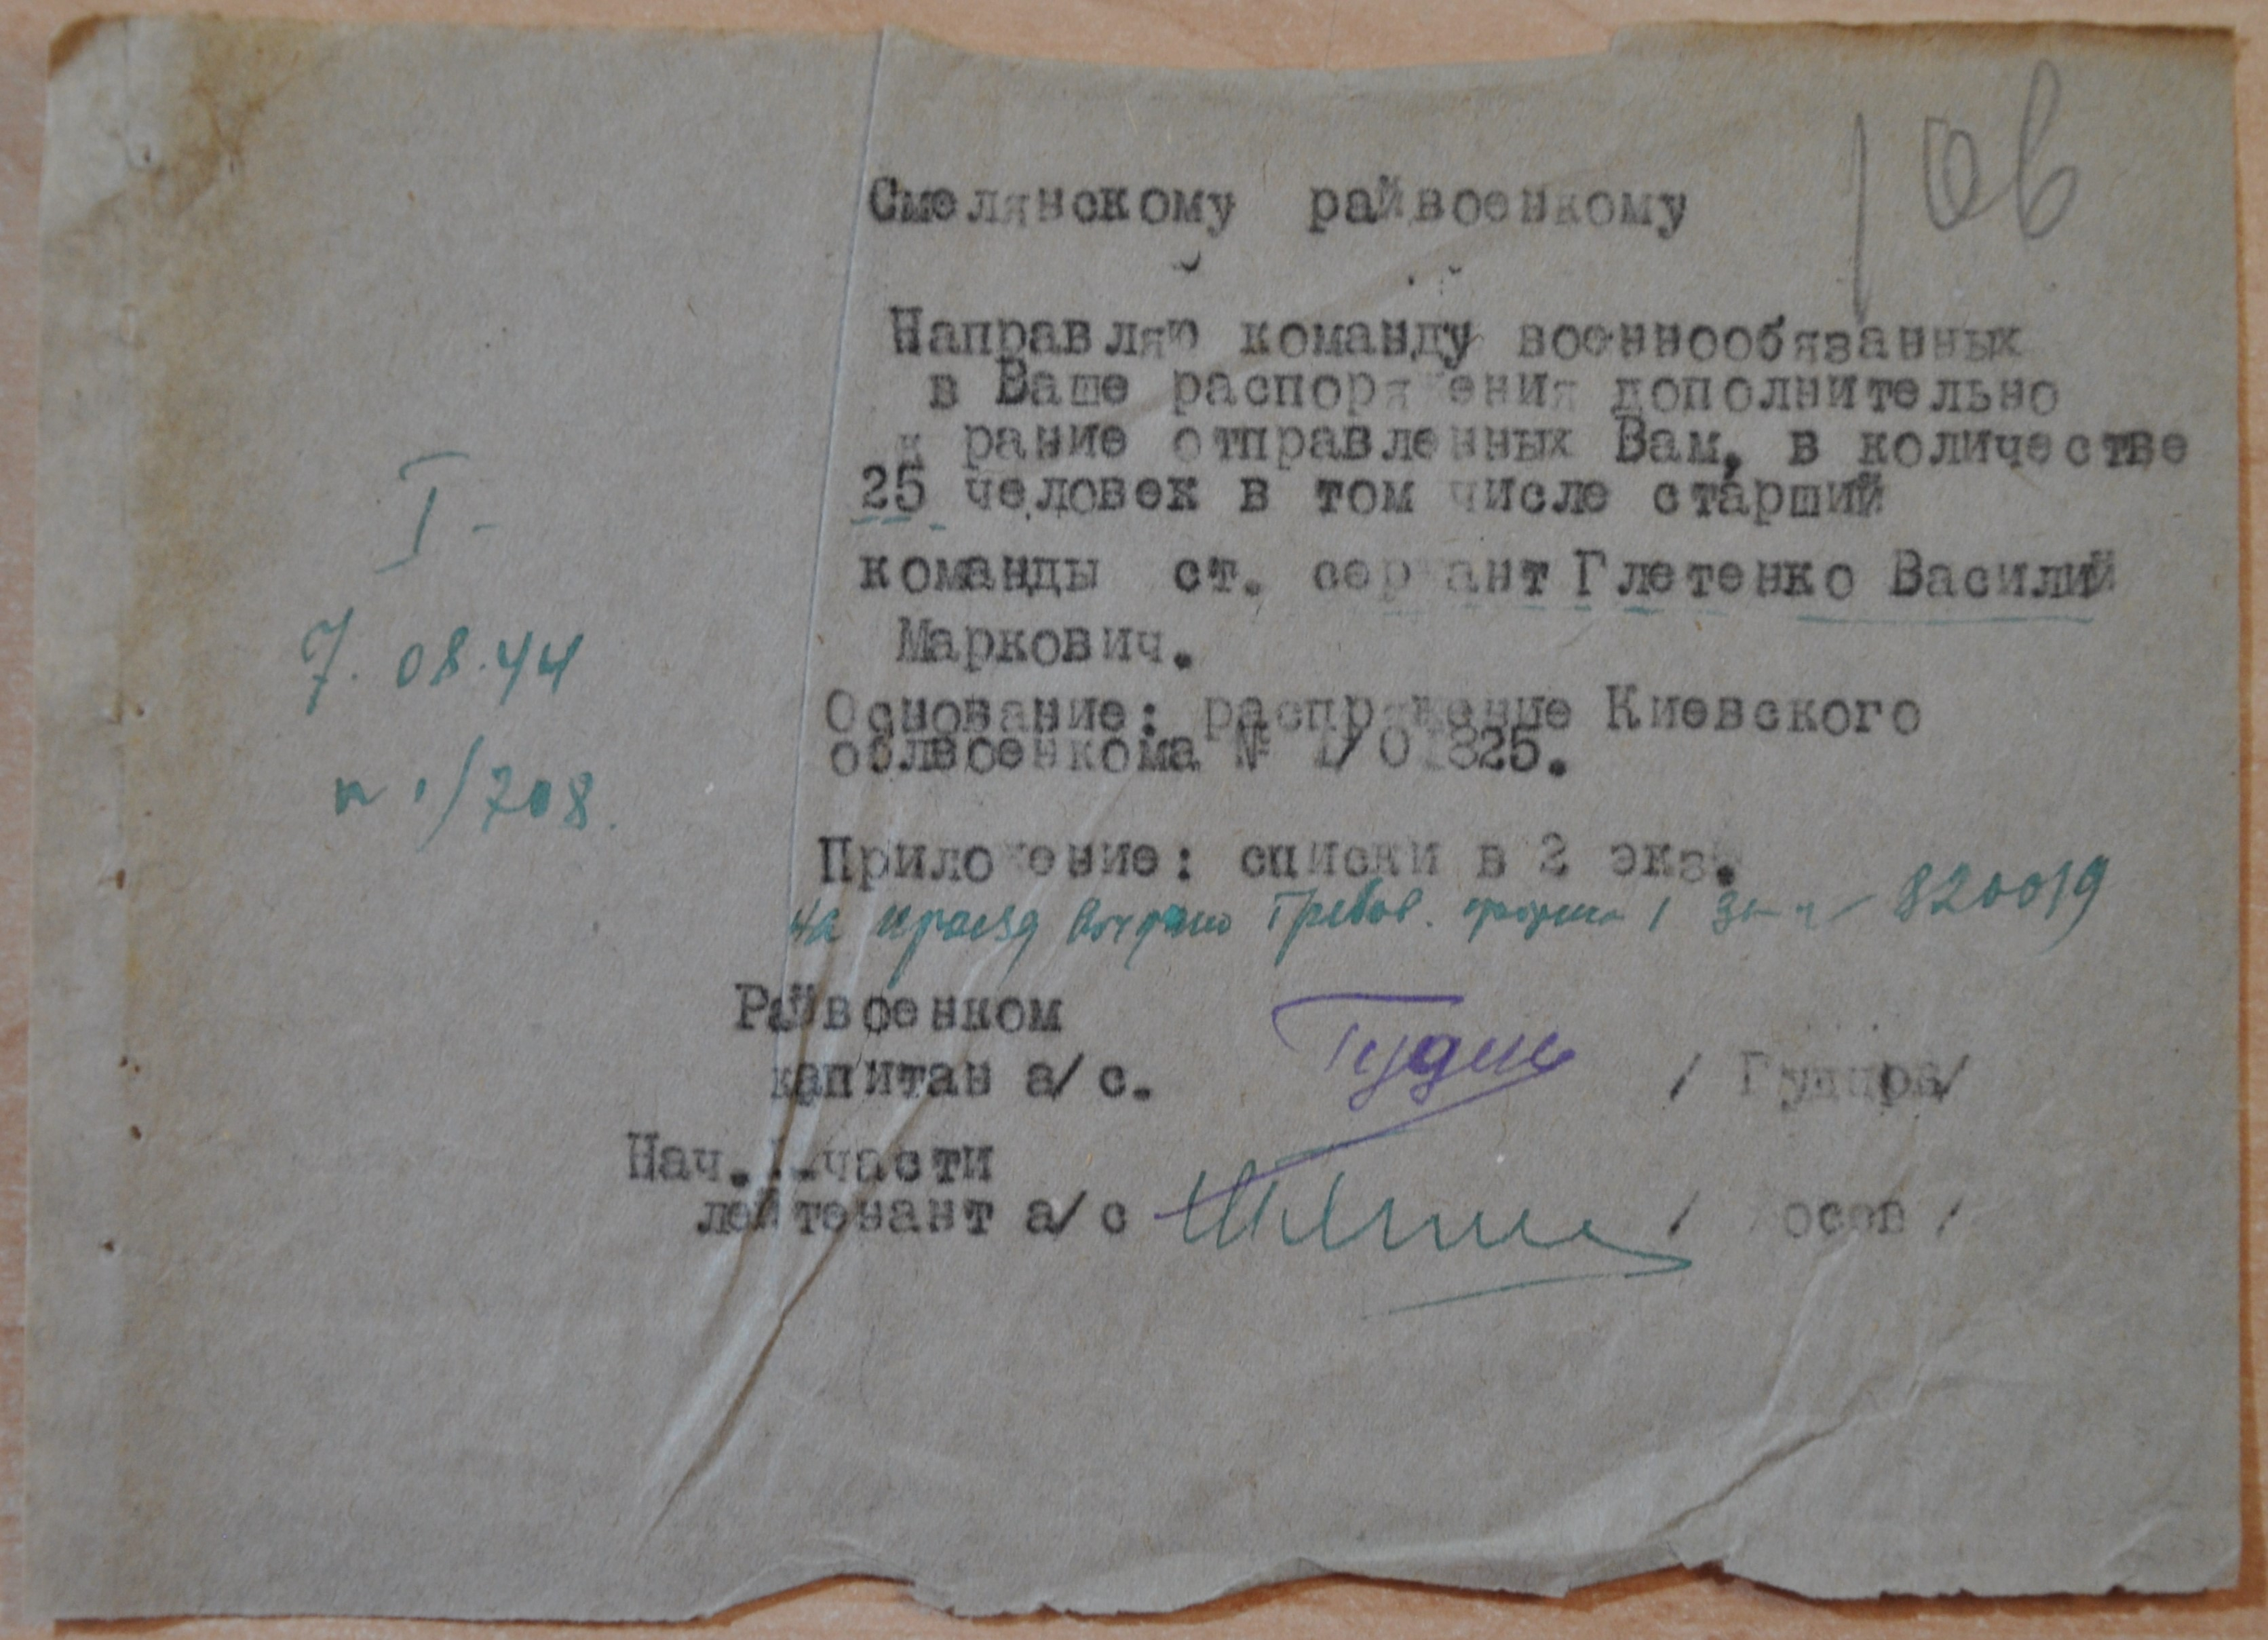 106
Смелянскому райвоенкому
Направляю команду военнообязанных
в Ваше распоряжения дополнительно
к рание отправленных Вам, в количестве
25 человек в том числе старший
команды ст. сержант Глетенко Василий
Маркович.
Основание: распряжение Киевского
облвоенкома № 1/01825.
I-
7.08.44
n 1/708.
Приложение: списки в 2 экз.
на проезд Требов. 820019
Райвоенком
капитан а/с.
Нач. 1-части
лейтенант а/с